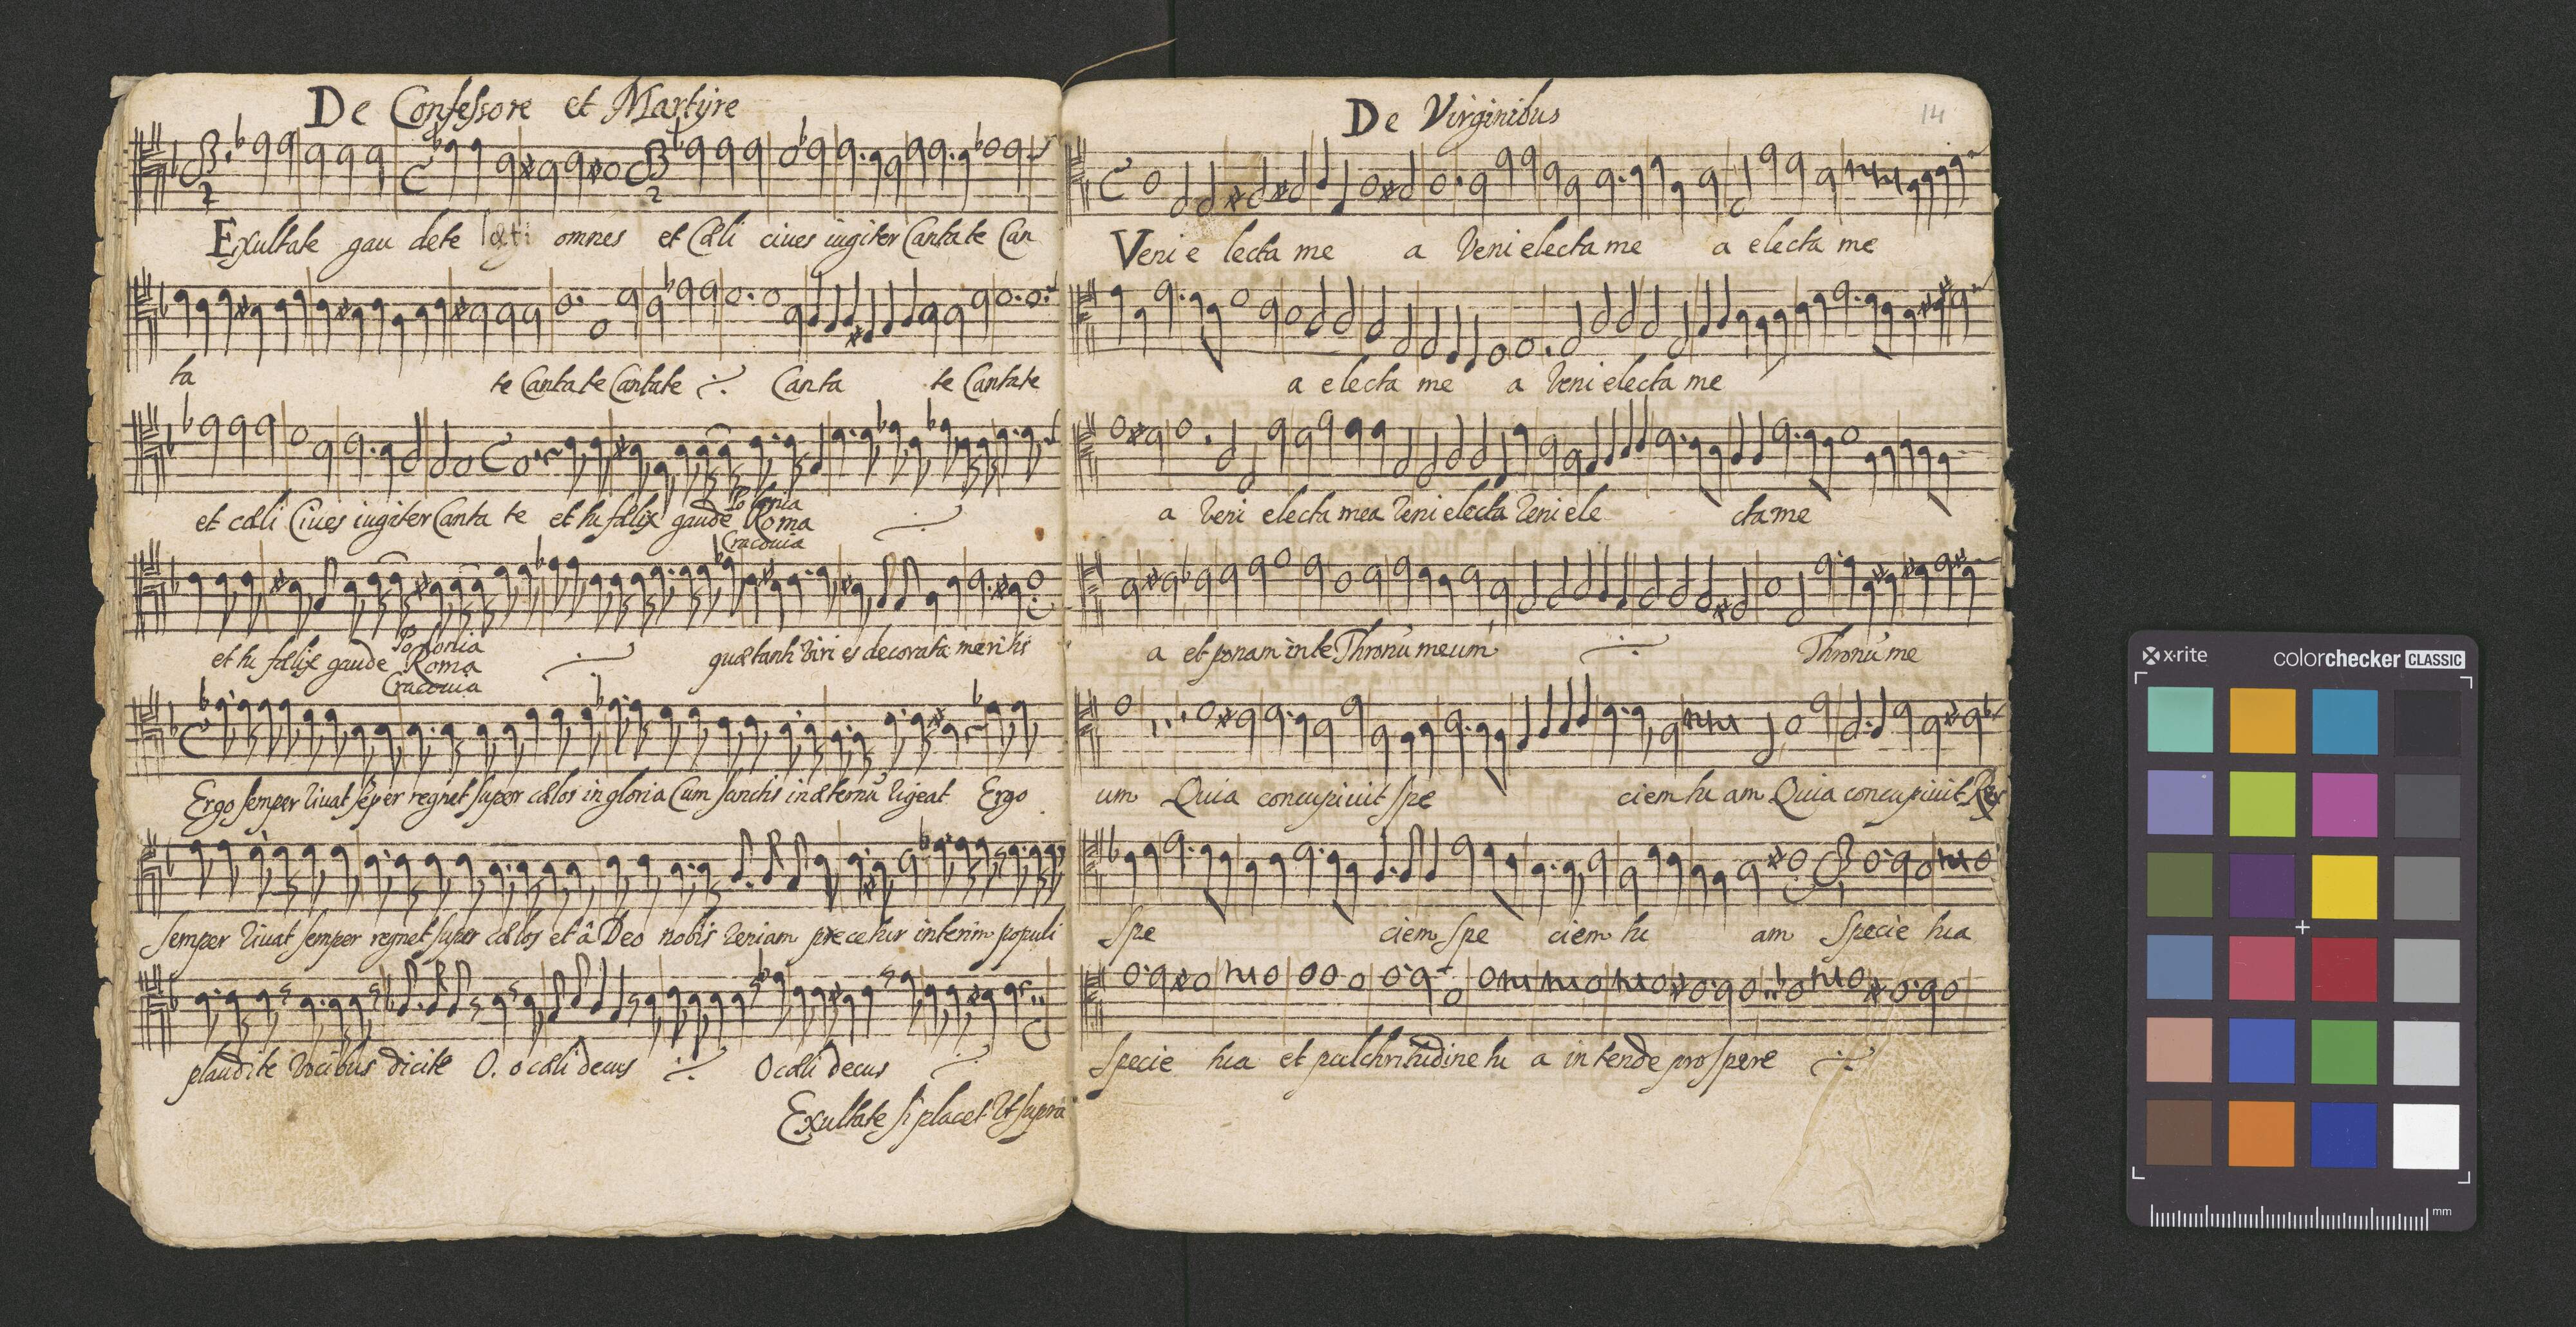 De Confessore et Martÿre
Exultate gau dete læti omnes et Cæli ciues iugiter Cantate Can
ta te Cantate Cantate ·/. Canta te Cantate
et cæli Ciues iugiter Canta te et tu fælix gaude Polonia
Roma ·/.
Cracouia
et tu fælix gaude Polonia
Roma ·/. quæ tanti viri es decorata meritis
Cracouia
Ergo semper viuat sēper regnet super cælos in gloria Cum sanctis in æternū vigeat Ergo
semper viuat semper regnet super cælos et â Deo nobis veniam precetur interim populi
plaudite vocibus dicite O. o cæli decus ·/. O cæli decus ·/.
Exultate si placet Vt supra
De Virginibus
14
Veni e lecta me a Veni electa me a electa me
a electa me a Veni electa me
a Veni electa mea Veni electa Veni ele cta me
a et ponam in te Thronū meum ·/. Thronū me
um Quia concupiuit spe ciem tu am Quia concupiuit Rex
spe ciem spe ciem tu am Specie tua
Specie tua et pulchritudine tu a in tende prospere ·/.
x·rite
colorchecker CLASSIC
mm